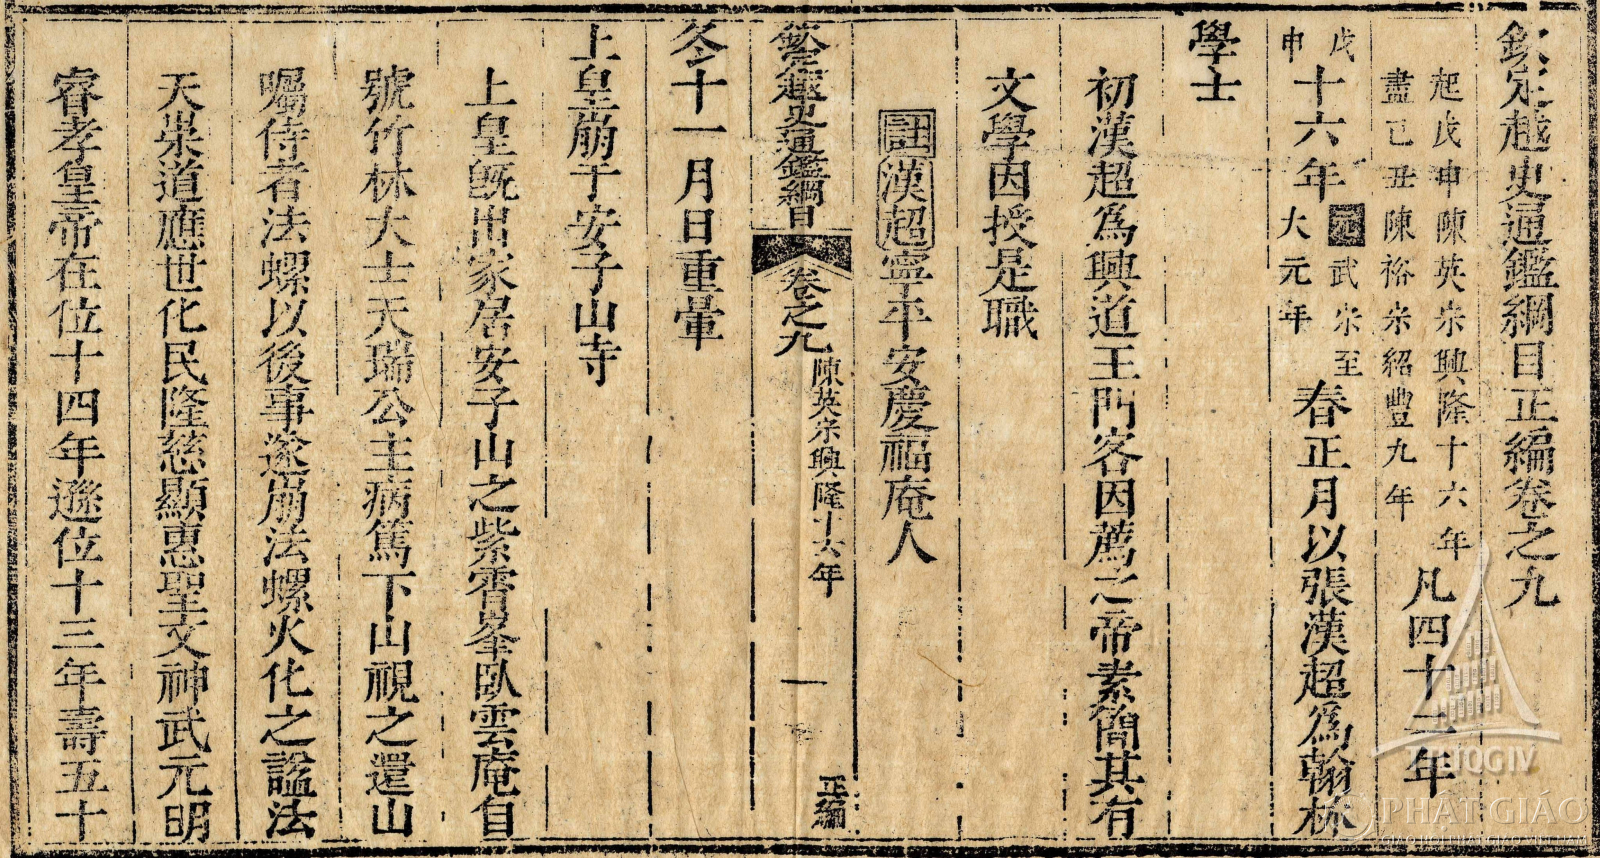 欽定越史通鑑綱目正編卷之九
起戊申陳英宗興隆十六年
盡己丑陳裕宗紹豐九年
凡四十二年
戊申
十六年
元武宗至
大元年
春正月以張漢超爲翰林
學士
初漢超爲興道王門客因薦之帝素簡其有
文學因授是職
註漢超寧平安慶福庵人
欽定越史通鑑綱目
卷之九
陳英宗興隆十六年
一
正編
冬十一月日重暈
上皇崩于安子山寺
上皇旣出家居安子山之紫霄峯臥雲庵自
號竹林大士天瑞公主病篤下山視之還山
囑侍者法螺以後事遂崩法螺火化之謚法
天崇道應世化民隆慈顯惠聖文神武元明
睿孝皇帝在位十四年遜位十三年壽五十
PHẬT GIÁO